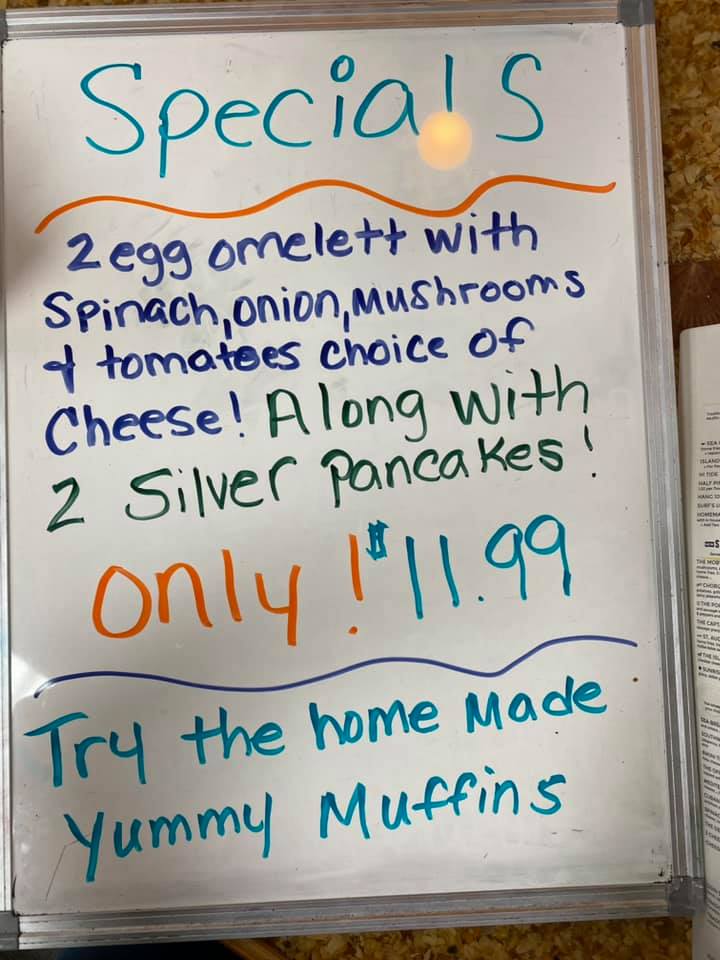 Specials
2 egg omelett with
Spinach, onion, Mushrooms
& tomatoes choice of
Cheese! Along with
2 Silver Pancakes!
only! $11.99
Try the home Made
Yummy Muffins